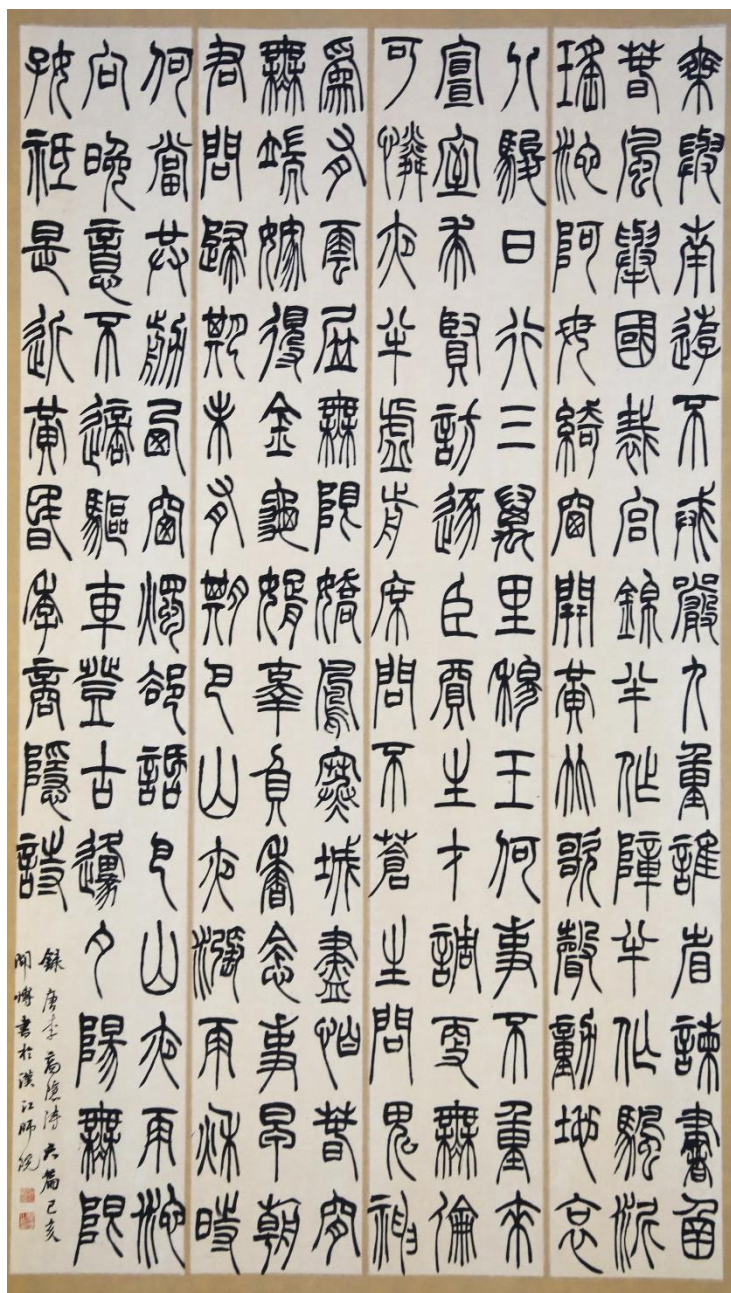 乘興南遊不戒嚴九重誰省諫書函
春風舉國裁宮錦半作障半作颿泥
瑤池阿母綺窗開黃竹歌聲動地哀
八駿日行三萬里穆王何事不重來
宣室求賢訪逐臣賈生才調更無倫
可憐夜半虛前席問不蒼生問鬼神
為有雲屏無限嬌鳳寒城盡怕春宵
無端嫁得金龜婿辜負香衾事早朝
君問歸期未有期巴山夜漲雨秋時
何當共剪西窗燭卻話巴山夜雨池
向晚意不適驅車登古邊夕陽無限
好祇是近黃昏李商隱詩
錄唐李商隱詩六篇己亥
開博書於漢江師院